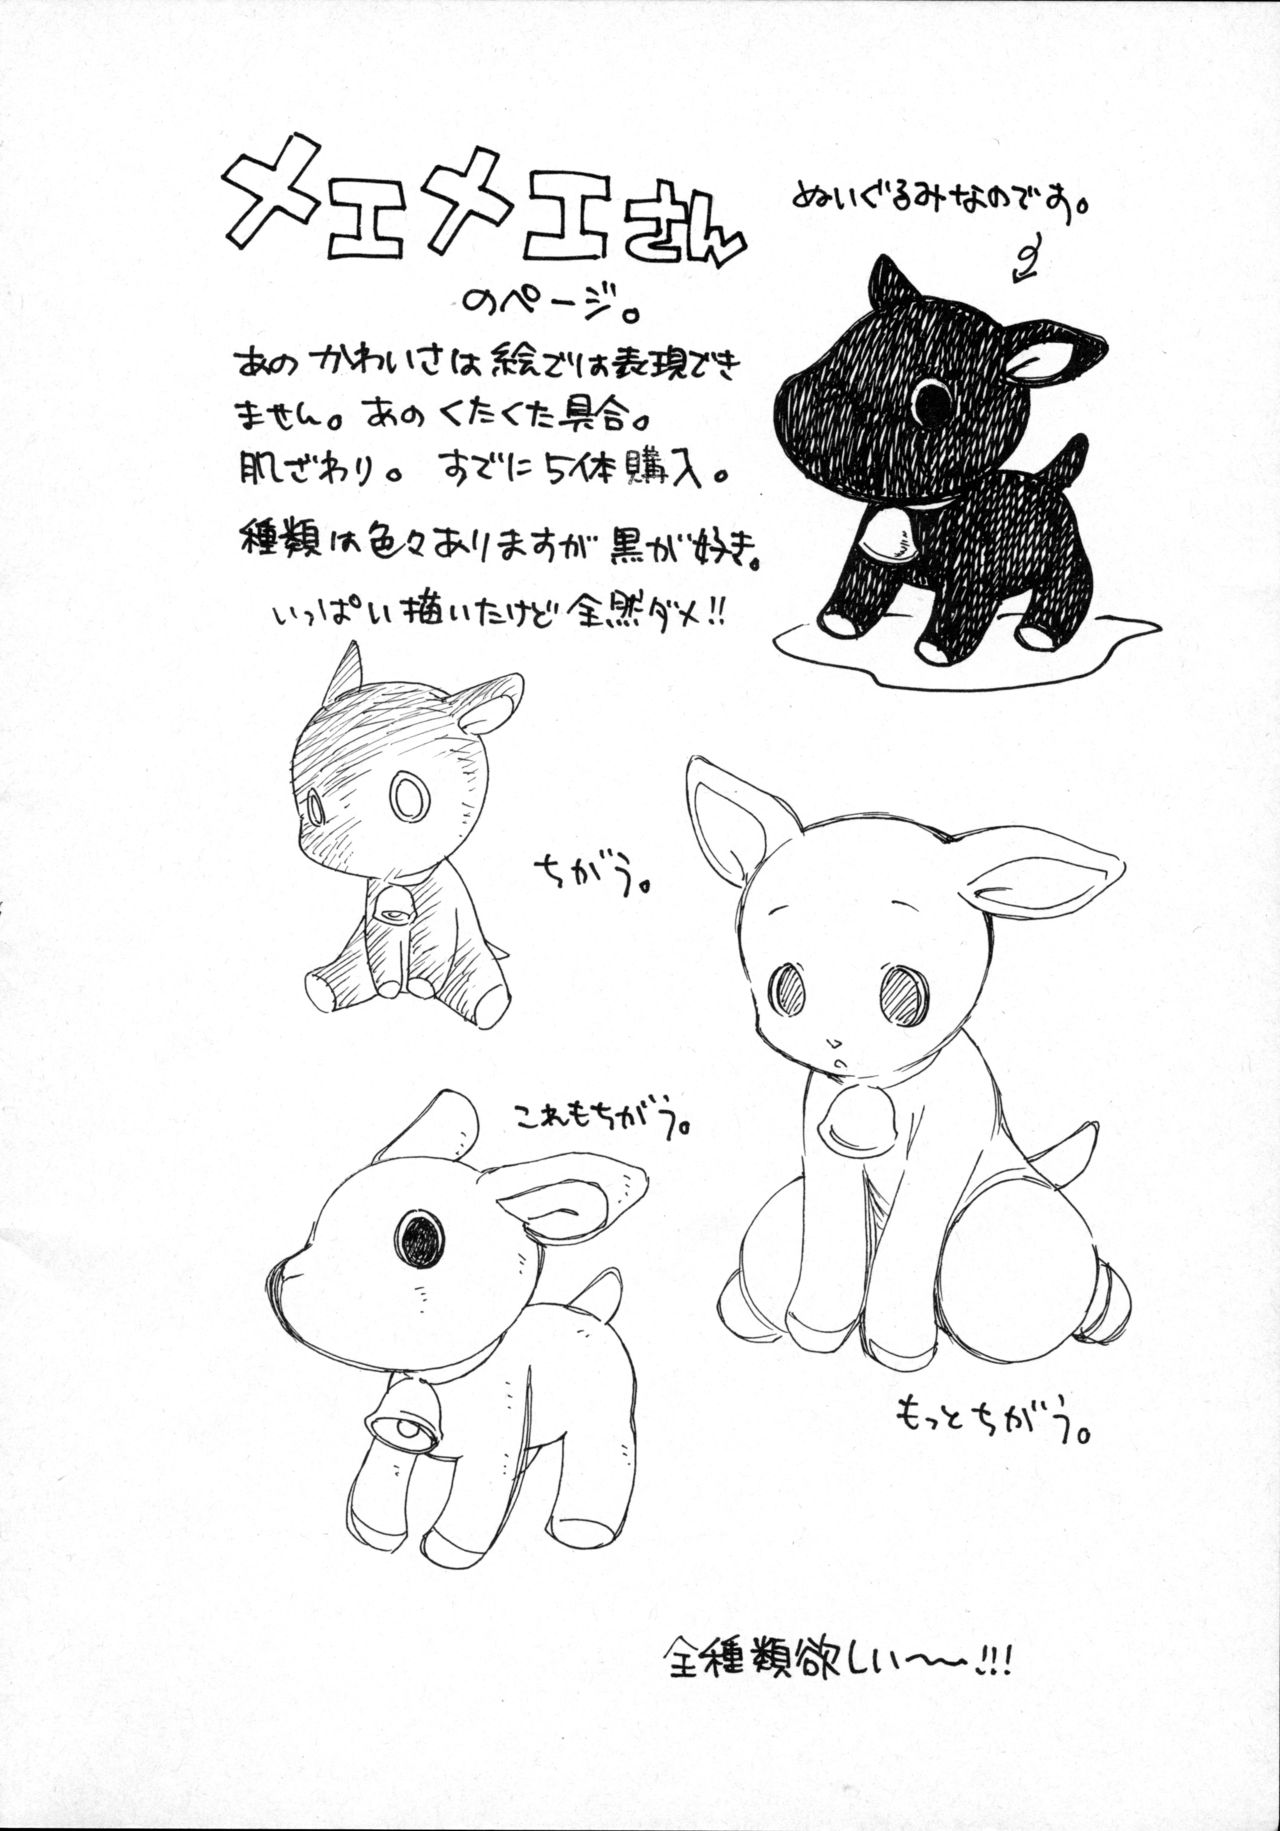 メエメエさん
のページ。
ぬいぐるみなのです。
あのかわいさは絵では表現でき
ません。あのくたくた具合。
肌ざわり。すでに5体購入。
種類は色々ありますが黒が好き。
いっぱい描いたけど全然ダメ!!
ちがう。
これもちがう。
もっとちがう。
全種類欲しい〜〜!!!